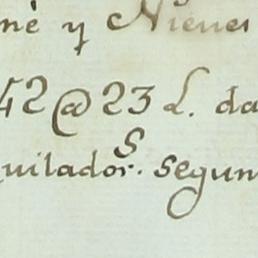 né y Nieves
42 @ 23 L. da
quiladors. segun